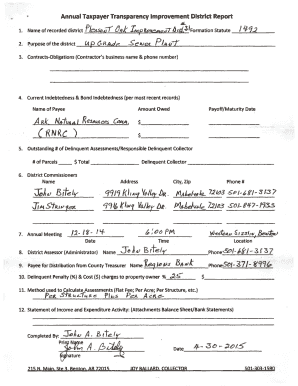 Annual Taxpayer Transparency Improvement District Report
1. Name of recorded district Pleasant Oak Improvement Dist Formation Statute 1992
2. Purpose of the district Upgrade Sewer Plant
3. Contracts-Obligations (Contractor's business name & phone number)
4. Current Indebtedness & Bond Indebtedness (per most recent records)
Name of Payee Amount Owed Payoff/Maturity Date
Ark Natural Resources Comm. $
(RNRC) $
5. Outstanding # of Delinquent Assessments/Responsible Delinquent Collector
# of Parcels $ Total Delinquent Collector
6. District Commissioners
Name Address City, Zip Phone #
John Bitely 9919 Kling Valley Dr. Mabelvale 72103 501-681-3137
Jim Stringer 9916 Kling Valley Dr. Mabelvale 72103 501-847-1933
7. Annual Meeting 12-18-14 6:00 PM Western Sizzlin, Benton
Date Time Location
8. District Assessor (Administrator) Name John Bitely Phone 501-681-3137
9. Payee for Distribution from County Treasurer Name Regions Bank Phone 501-371-8996
10. Delinquent Penalty (%) & Cost ($) charges to property owner % 25 $
11. Method used to Calculate Assessments (Flat Fee; Per Acre; Per Structure, etc.)
Per Structure Plus Per Acre
12. Statement of Income and Expenditure Activity: (Attachments Balance Sheet/Bank Statements)
Completed By: John A. Bitely
Print Name
John A. Bitely Date 4-30-2015
Signature
215 N. Main. Ste 3. Benton, AR 72015 JOY BALLARD, COLLECTOR 501-303-1580